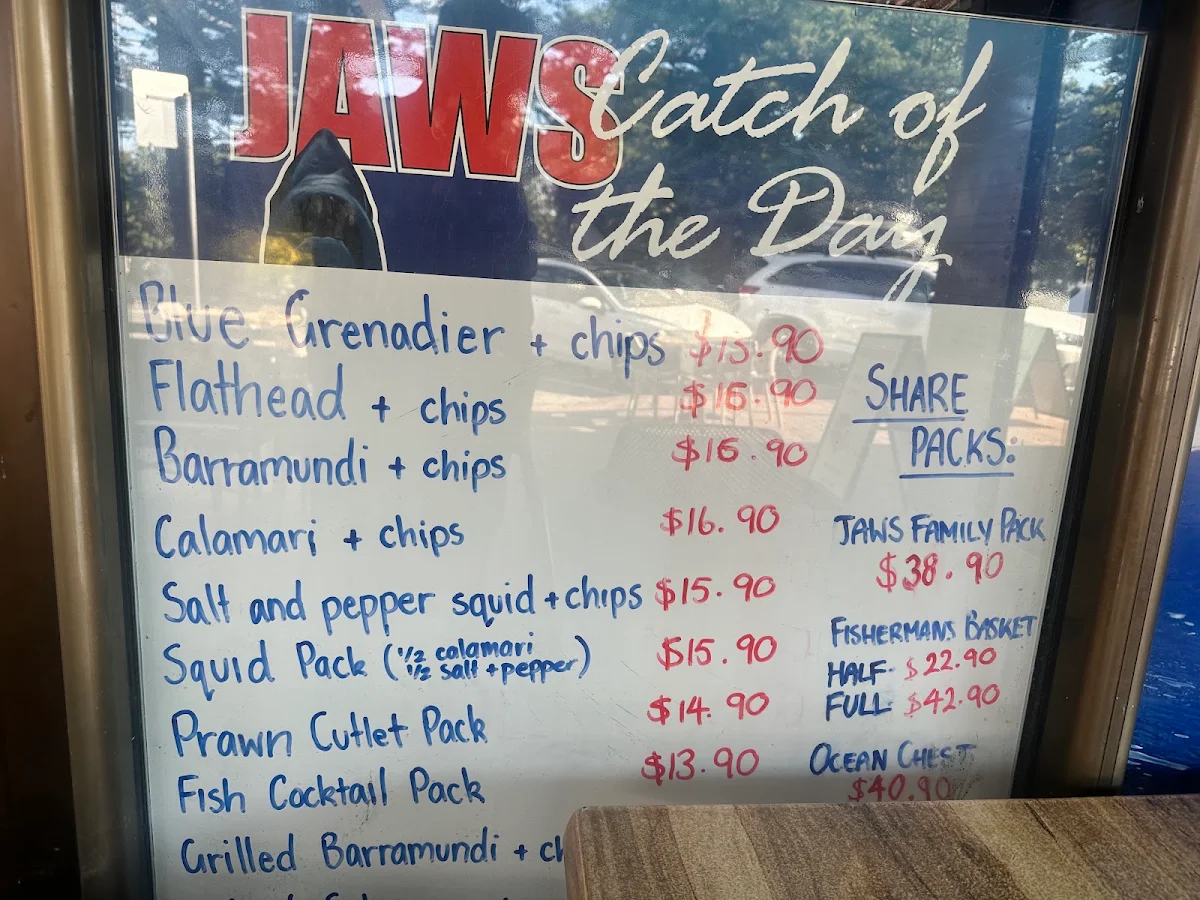 JAWS Catch of
the Day
Blue Grenadier + chips $15.90
Flathead + chips $16.90
Barramundi + chips $16.90
Calamari + chips $16.90
Salt and pepper squid + chips $15.90
Squid Pack (1/2 calamari
1/2 salt + pepper) $15.90
Prawn Cutlet Pack $14.90
Fish Cocktail Pack $13.90
Grilled Barramundi +
SHARE
PACKS:
JAWS FAMILY PACK
$38.90
FISHERMANS BASKET
HALF- $22.90
FULL- $42.90
OCEAN CHEST
$40.90